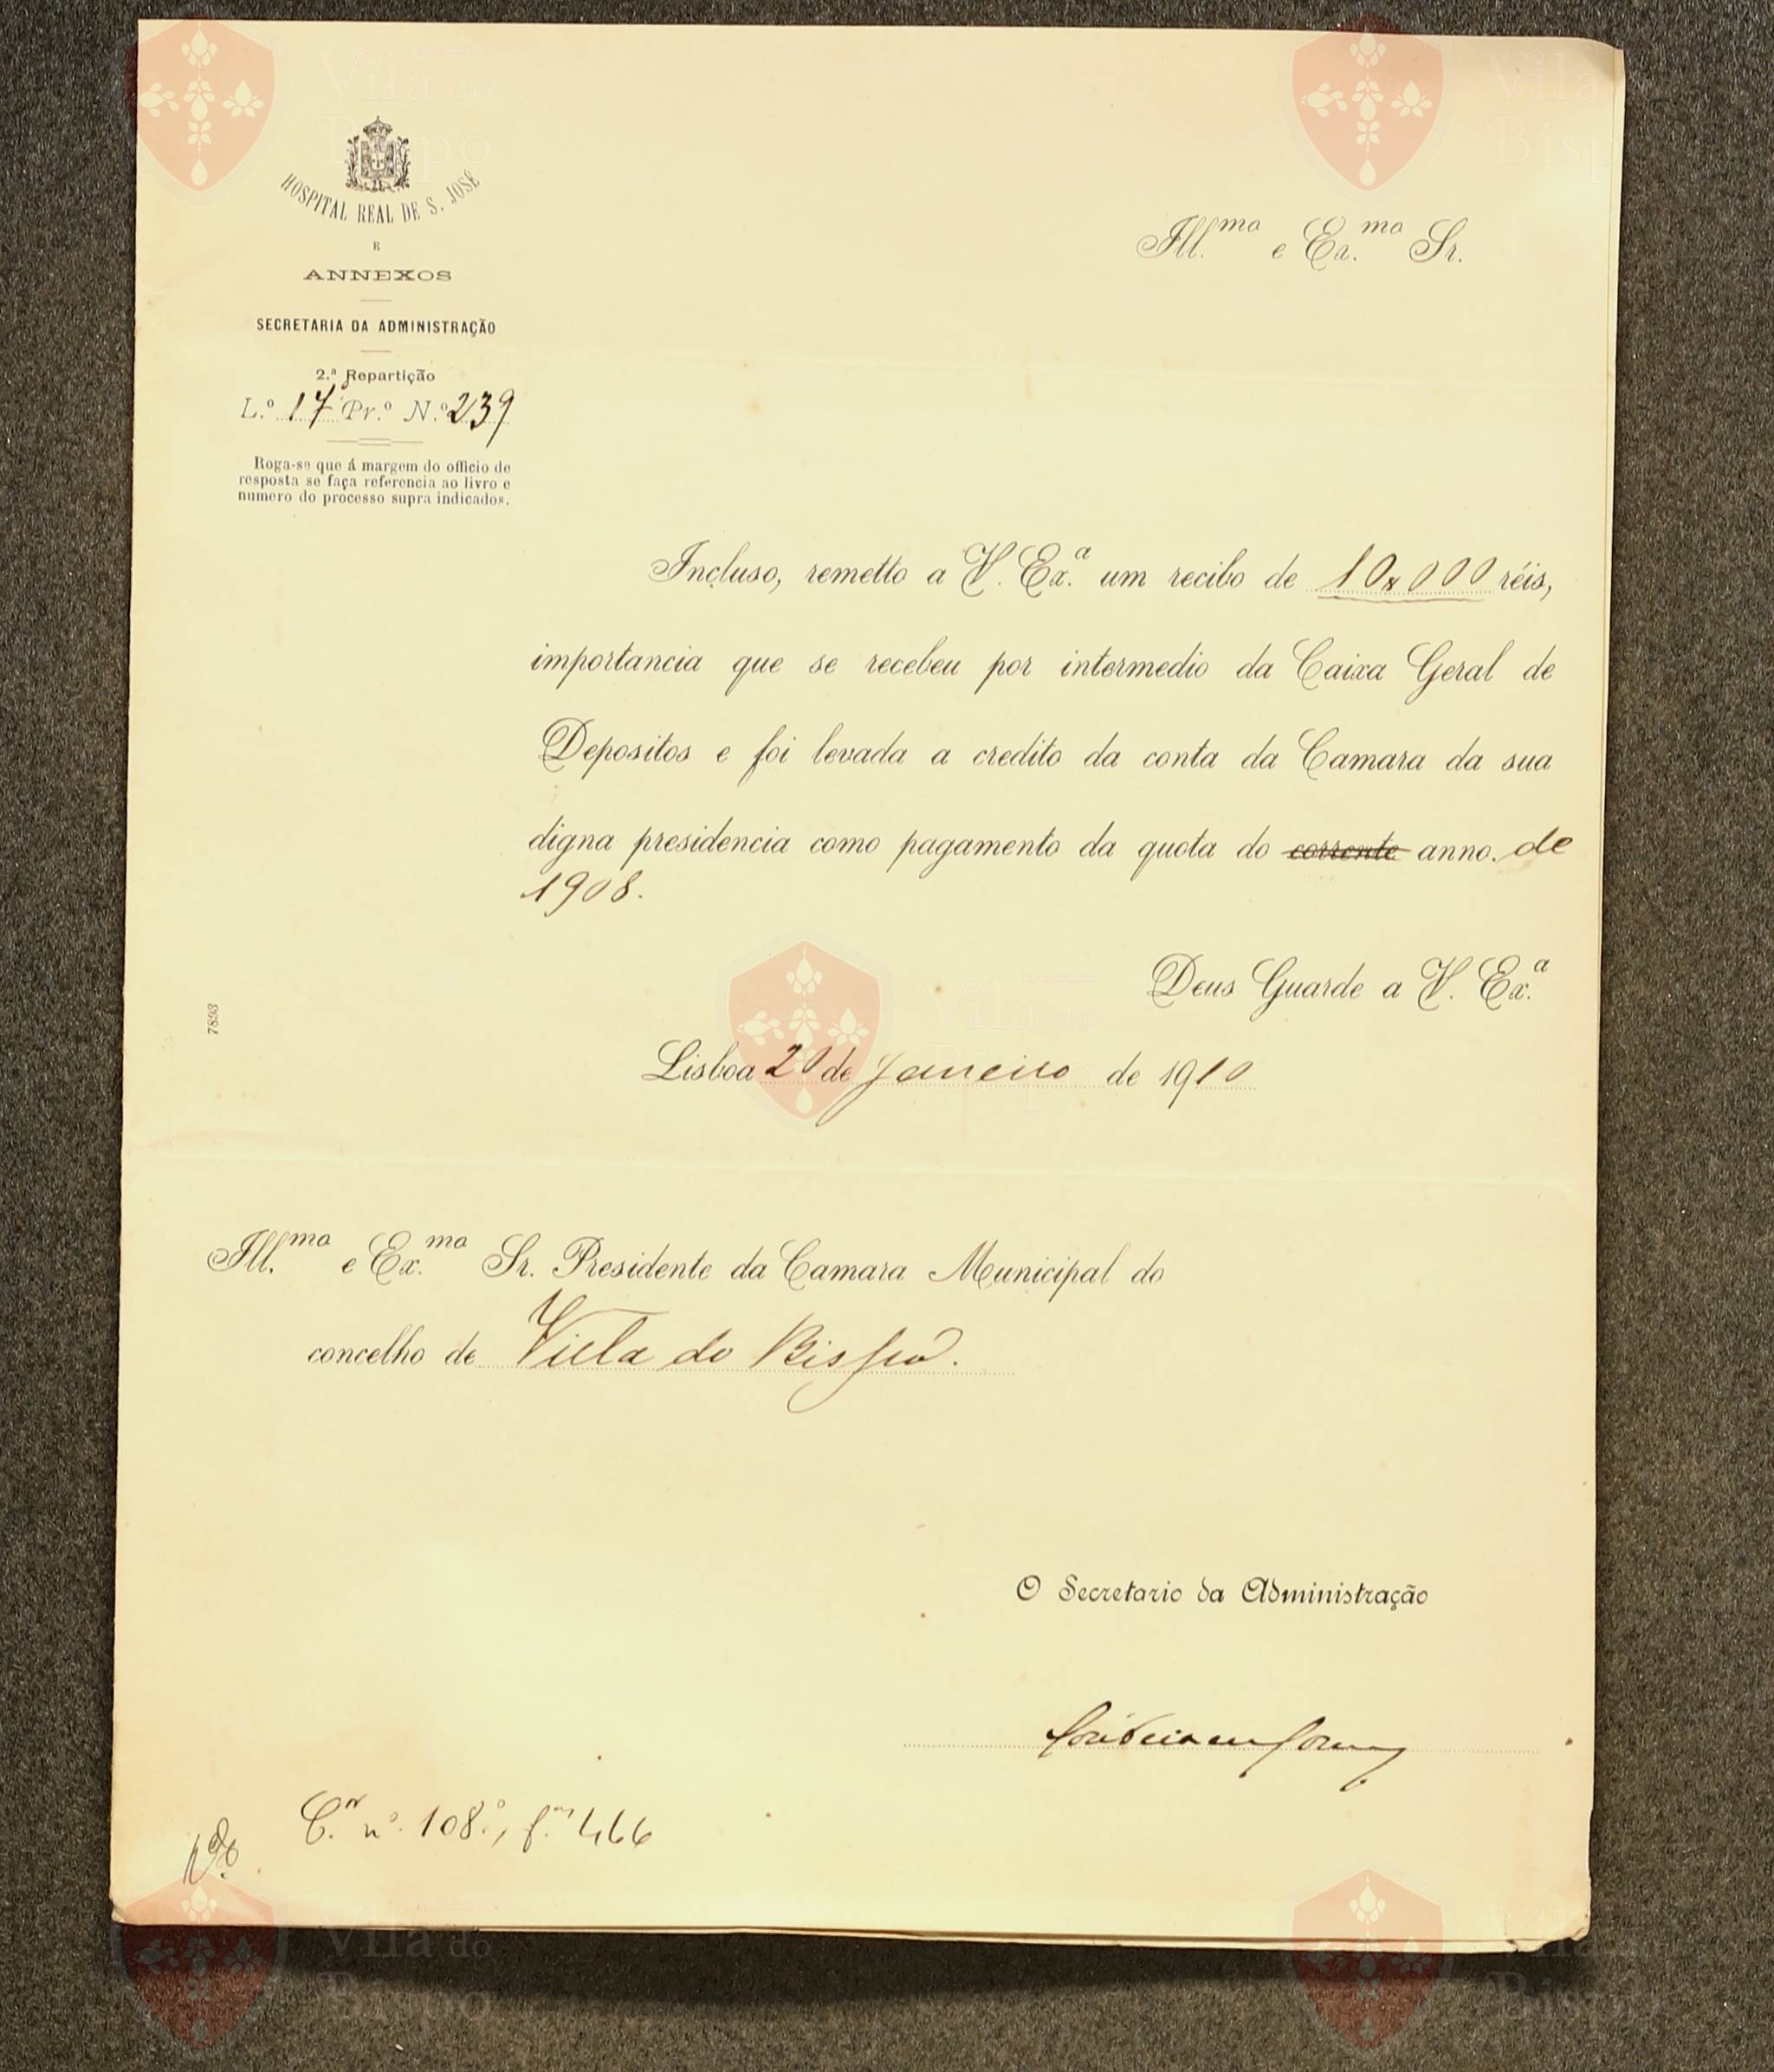 HOSPITAL REAL DE S. JOSÉ
E
ANNEXOS
SECRETARIA DA ADMINISTRAÇÃO
2.ª Repartição
L.º 17 Pr.º N.º 239
Roga-se que á margem do officio de
resposta se faça referencia ao livro e
numero do processo supra indicados.
Ill.mo e Ex.mo Sr.
Incluso, remetto a V. Ex.ª um recibo de 10$000 réis,
importancia que se recebeu por intermedio da Caixa Geral de
Depositos e foi levada a credito da conta da Camara da sua
digna presidencia como pagamento da quota do corrente anno. de
1908.
Deus Guarde a V. Ex.ª
7893
Lisboa 20 de Janeiro de 1910
Ill.mo e Ex.mo Sr. Presidente da Camara Municipal do
concelho de Villa do Bispo.
O Secretario da Administração
C. nº. 108., f. 466
Vila do
Bispo